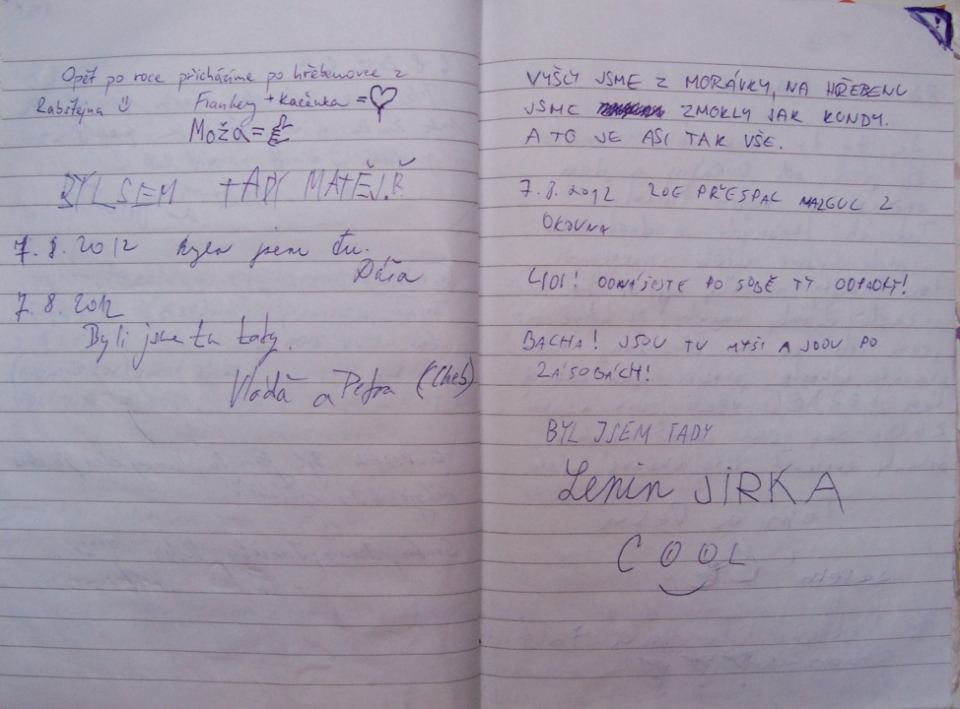 Opět po roce přicházíme po hřebenovce z
Rabštejna
Frankey + Kačenka =
Moža =
BYL SEM TADY MATĚJ.Ř
7.8.2012 byla jsem tu.
Dáša
7.8.2012
Byli jsme tu taky.
Vláďa a Petra (Cheb)
VYŠLY JSME Z MORÁVKY, NA HŘEBENU
JSME ZMOKLY JAK KUNDY.
A TO JE ASI TAK VŠE.
7.8.2012 ZDE PŘESPAL NAZGUL Z
LIDI! ODNÁŠEJTE PO SOBĚ TY ODPADKY!
BACHA! JSOU TU MYŠI A JDOU PO
ZÁSOBÁCH!
BYL JSEM TADY
Lenin JIRKA
COOL